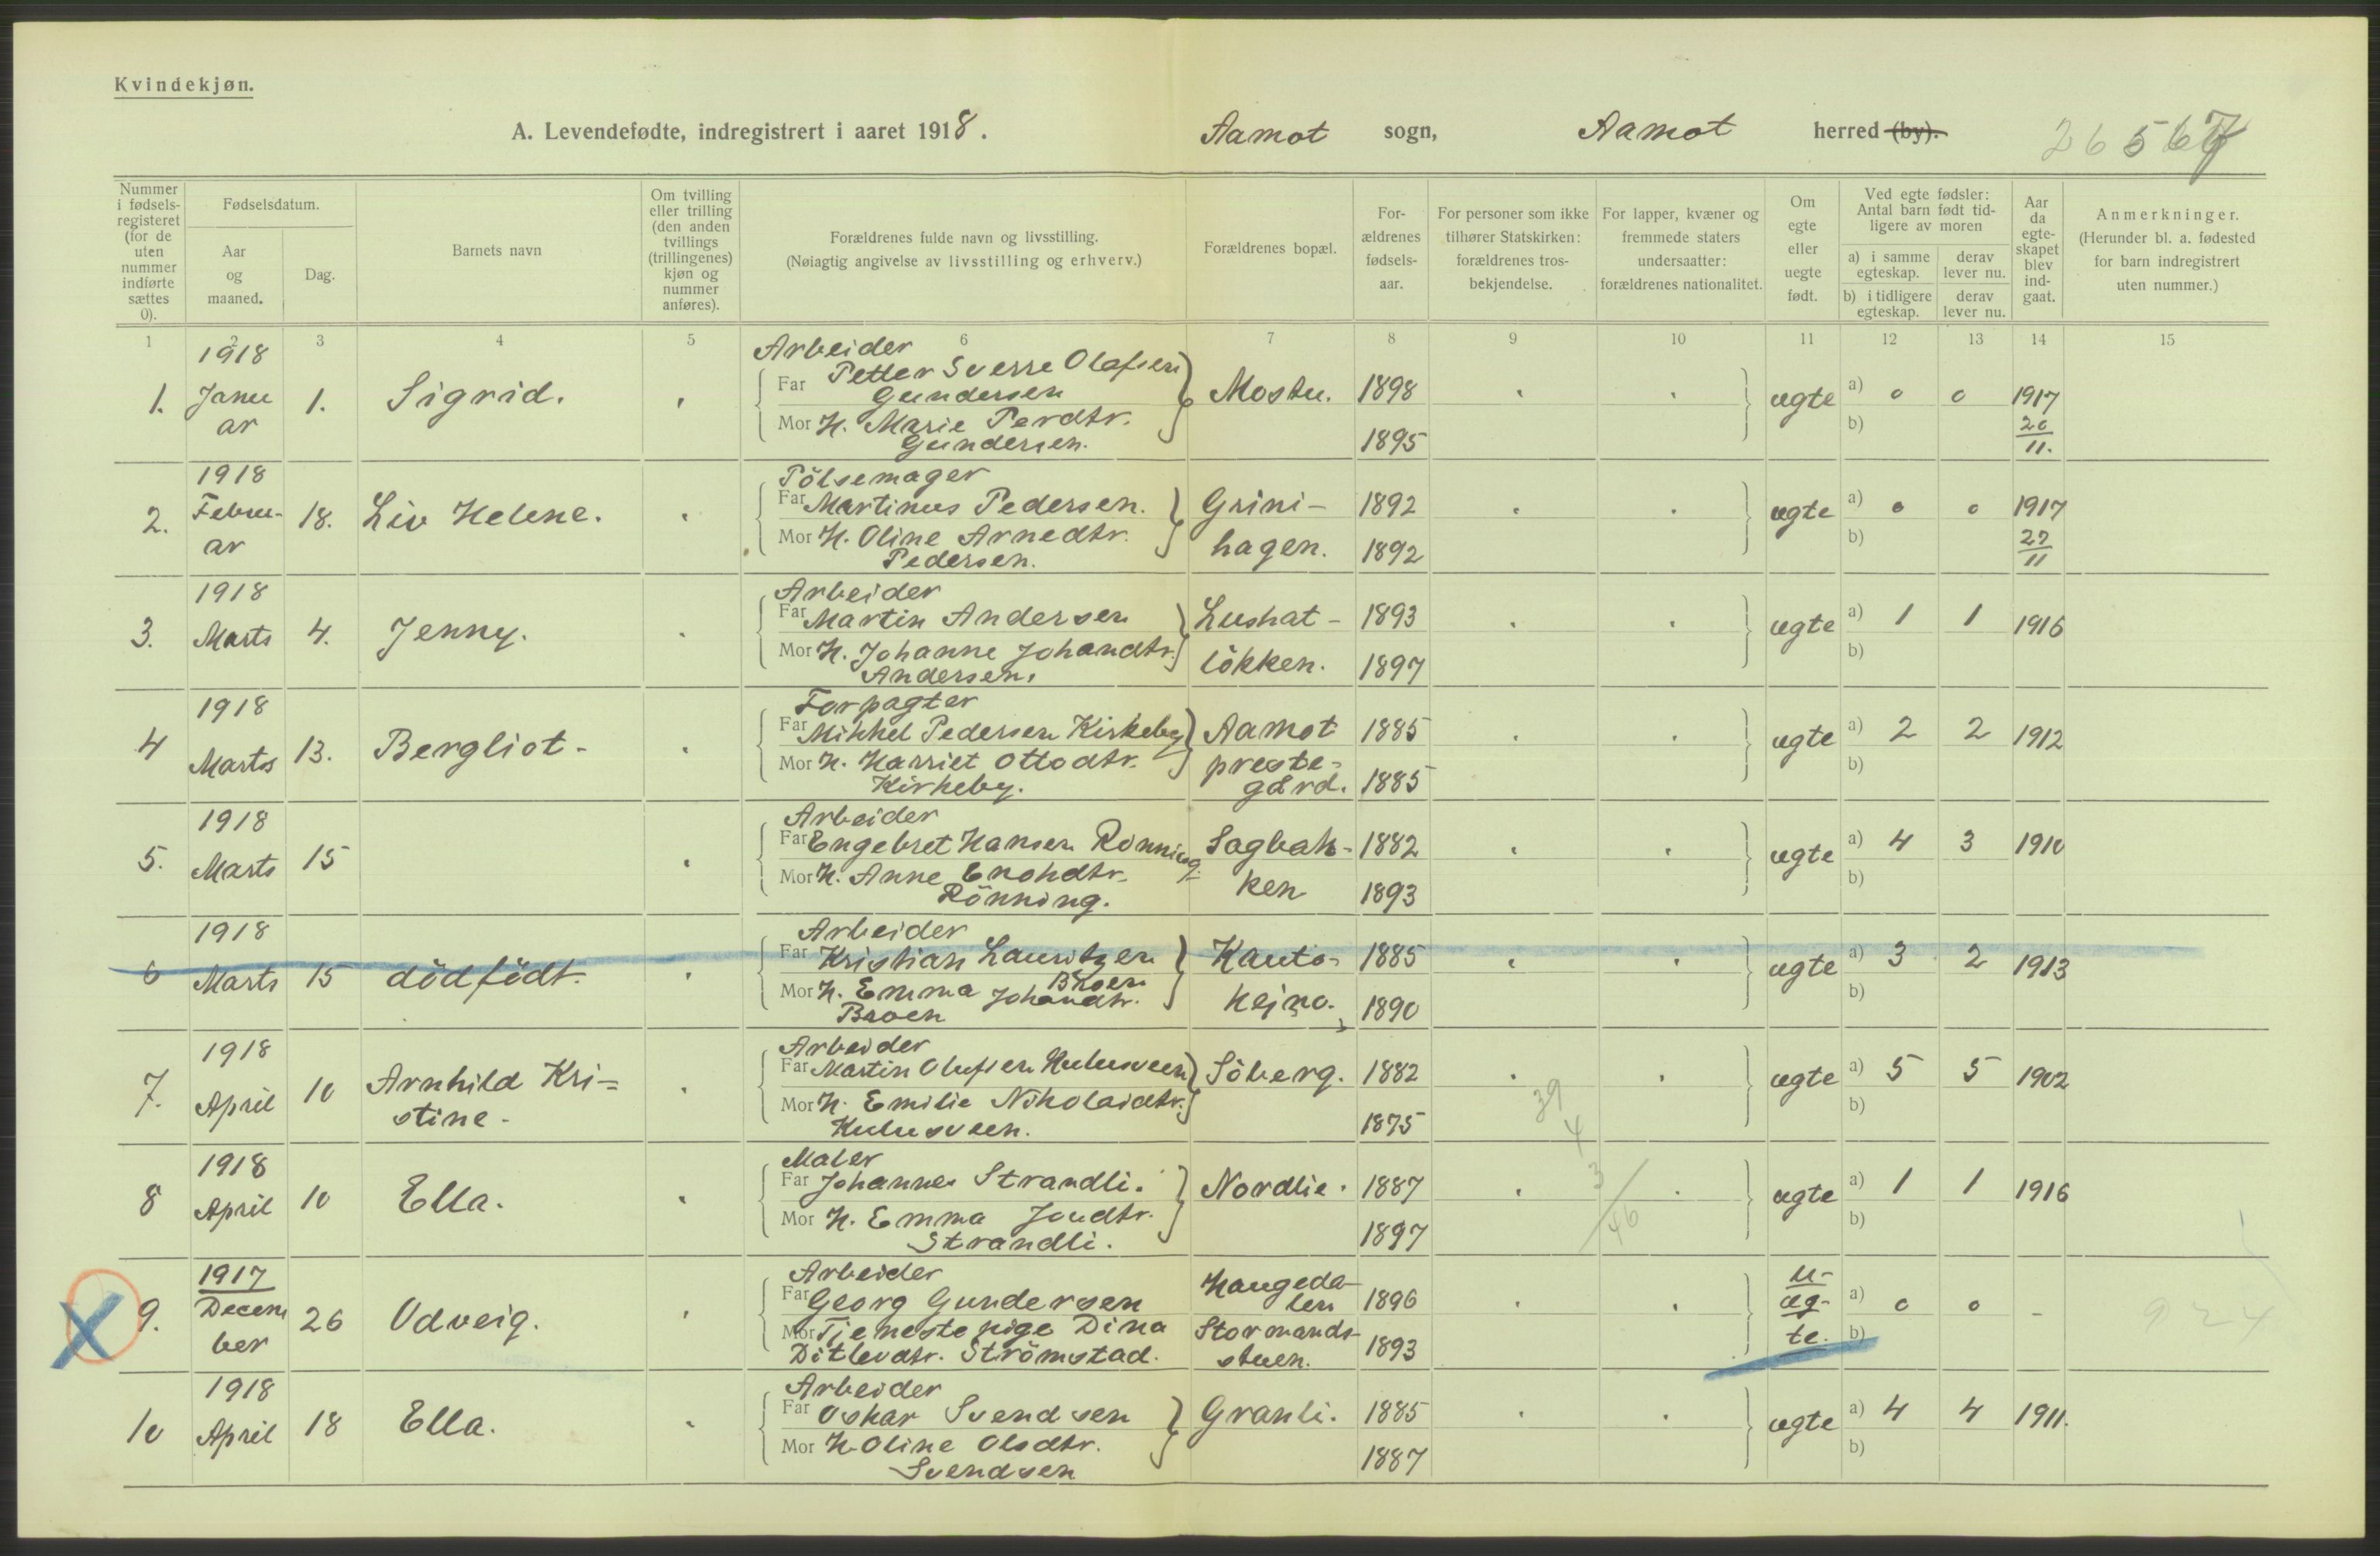 Kvindekjøn.
A. Levendefødte, indregistrert i aaret 1918. Aamot sogn, Aamot herred (by).
Nummer i fødselsregisteret (for de uten nummer indførte sættes 0).
Fødselsdatum.
Aar og maaned.
Dag.
Barnets navn
Om tvilling eller trilling (den anden tvillings (trillingenes) kjøn og nummer anføres).
Forældrenes fulde navn og livsstilling.
(Nøiagtig angivelse av livsstilling og erhverv.)
Forældrenes bopæl.
Forældrenes fødselsaar.
For personer som ikke tilhører Statskirken: forældrenes trosbekjendelse.
For lapper, kvæner og fremmede staters undersaatter: forældrenes nationalitet.
Om egte eller uegte født.
Ved egte fødsler: Antal barn født tidligere av moren
a) i samme egteskap. derav lever nu.
b) i tidligere egteskap. derav lever nu.
Aar da egteskapet blev indgaat.
Anmerkninger.
(Herunder bl. a. fødested for barn indregistrert uten nummer.)
1 2 3 4 5 6 7 8 9 10 11 12 13 14 15
1918 Arbeider
1. Januar 1. Sigrid. Far Petter Sverre Olafsen Gundersen Mostu. 1898 ægte a) 0 0 1917
Mor H. Marie Perdtr. Gundersen. 1895 b) 20/11.
1918 Pölsemager
2. Februar 18. Liv Helene. Far Martinus Pedersen. Grini- 1892 ægte a) 0 0 1917
Mor H. Oline Arnedtr. Pedersen. hagen. 1892 b) 27/11
1918 Arbeider
3. Marts 4. Jenny. Far Martin Andersen Lushat- 1893 ægte a) 1 1 1916
Mor H. Johanne Johandtr. Andersen. lökken. 1897 b)
1918 Forpagter
4 Marts 13. Bergliot- Far Mikkel Pedersen Kirkeby Aamot 1885 ægte a) 2 2 1912
Mor H. Harriet Ottodtr. Kirkeby. prestegård. 1885 b)
1918 Arbeider
5. Marts 15 Far Engebret Hansen Rönning Sagbak- 1882 ægte a) 4 3 1910
Mor H. Anne Enokdtr. Rönning. ken 1893 b)
1918 Arbeider
6 Marts 15 dödfödt. Far Kristian Lauritzen Broen Kauto- 1885 ægte a) 3 2 1913
Mor H. Emma Johandtr. Broen kejno. 1890 b)
1918 Arbeider
7. April 10 Arnhild Kri- Far Martin Olufsen Kulusveen Söberg. 1882 ægte a) 5 5 1902
stine- Mor H. Emilie Nikolaidtr. Kulusveen. 1875 b)
1918 Maler
8 April 10 Ella. Far Johannes Strandli. Nordlie. 1887 ægte a) 1 1 1916
Mor H. Emma Jondtr. Strandli. 1897 b)
1917 Arbeider
9. December 26 Odveig. Far Georg Gundersen Haugedalen 1896 u-ægte. a) 0 0 -
Mor Tjenestepige Dina Ditlevdtr. Strömstad. Stormandsstuen. 1893 b)
1918 Arbeider
10 April 18 Ella. Far Oskar Svendsen Granli. 1885 ægte a) 4 4 1911.
Mor H. Oline Olsdtr. Svendsen 1887 b)